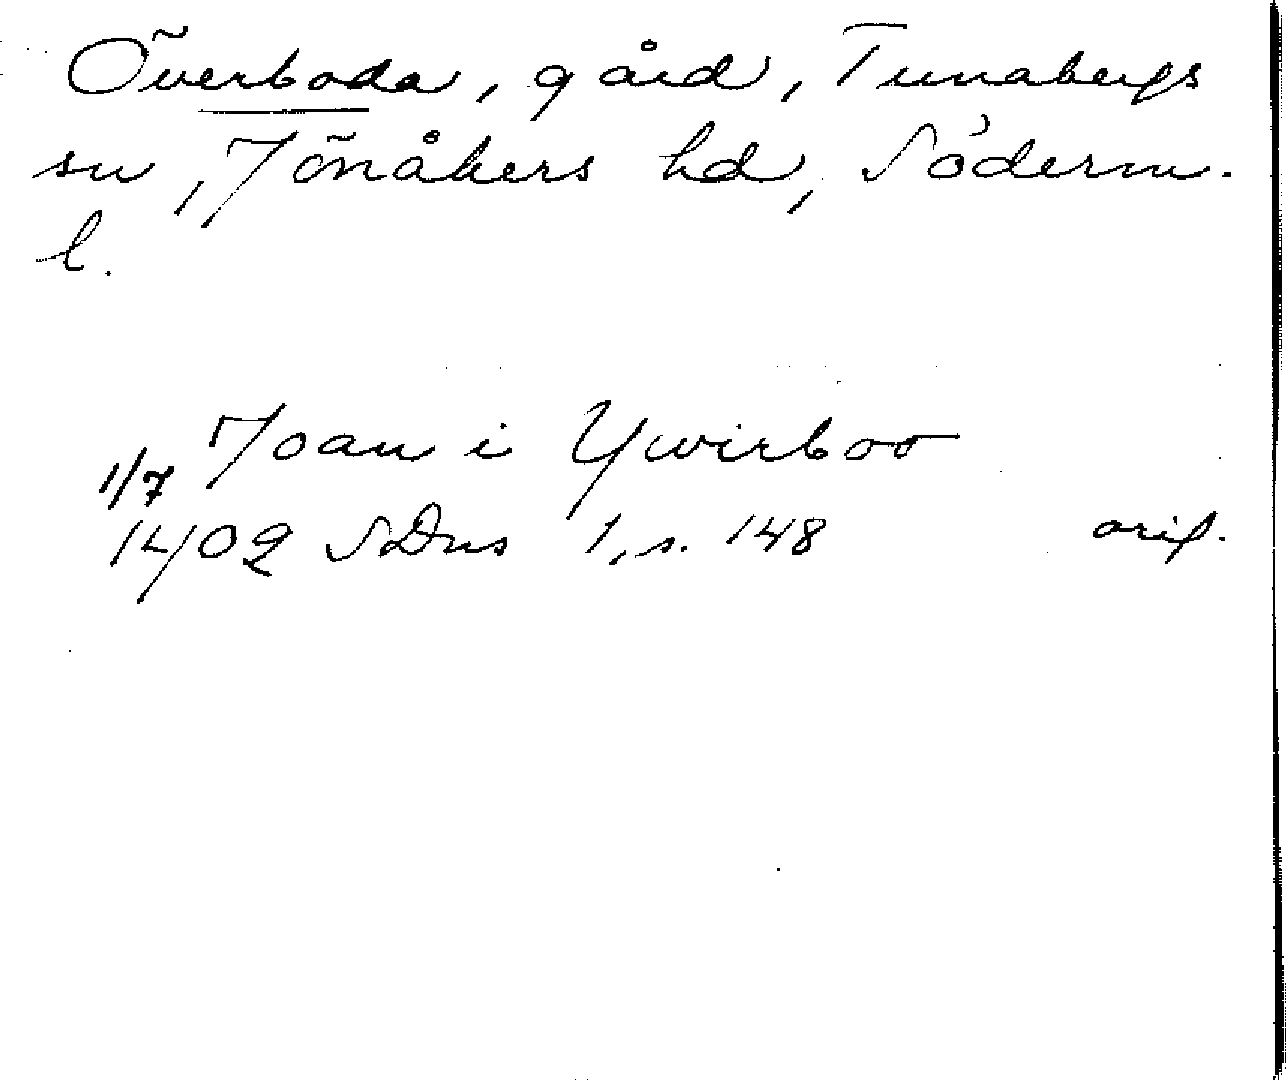 Överboda, gård, Tunabergs
sn, Jönåkers hd, Söderm.
l.
Joan i Ywirboo
1/7
1402 SDns 1, s. 148 orig.